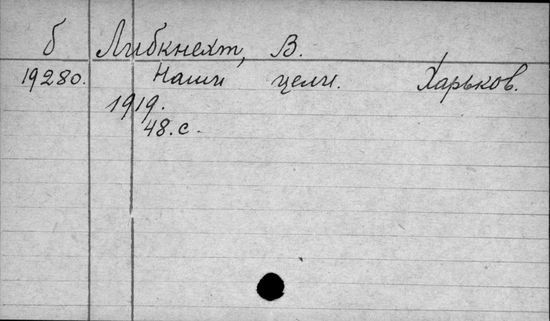 б Либкнехт, В.
19280. Наши цели. Харьков.
1919.
48.с.